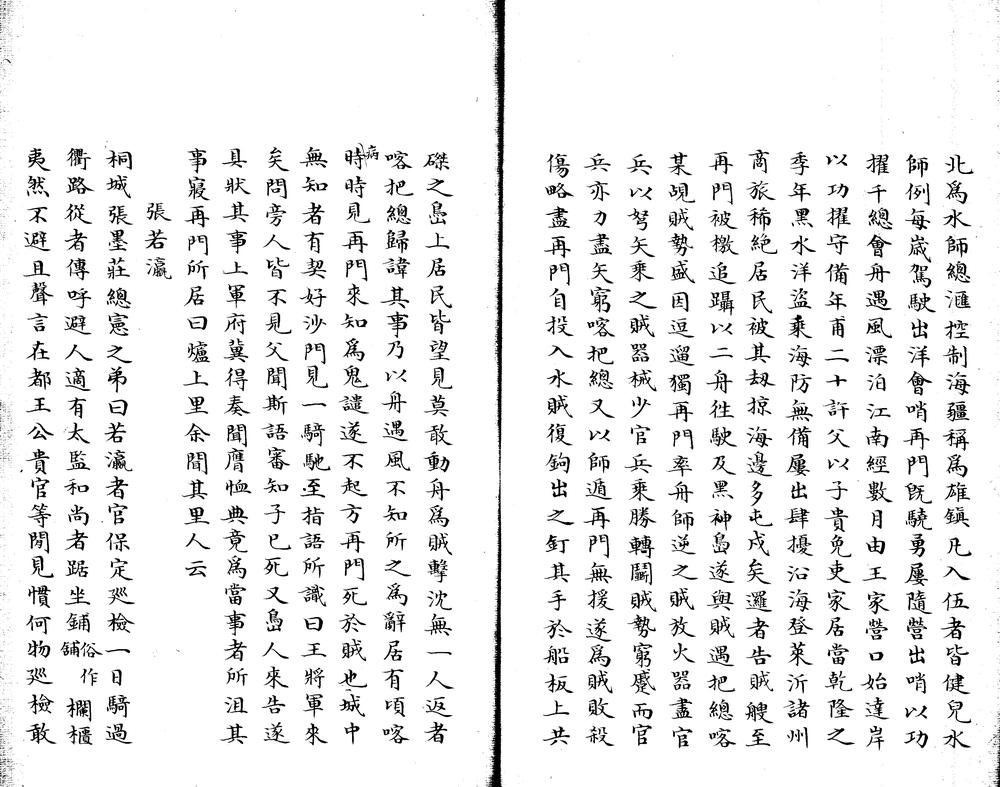 北爲水師總滙控制海疆稱爲雄鎮凡入伍者皆健兒水
師例每嵗駕駛出洋會哨再門旣驍勇屢隨營出哨以功
擢千總會舟遇風漂泊江南經數月由王家營口始達岸
以功擢守備年甫二十許父以子貴免吏家居當乾隆之
季年黑水洋盜乘海防無備屢出肆擾沿海登萊沂諸州
商旅稀絶居民被其刼掠海邊多屯戍矣邏者告賊艘至
再門被檄追躡以二舟徃駛及黑神島遂與賊遇把總喀
某覘賊勢盛因逗遛獨再門率舟師逆之賊放火器盡官
兵以弩矢乘之賊器械少官兵乘勝轉鬬賊勢窮蹙而官
兵亦力盡矢窮喀把總又以師遁再門無援遂爲賊敗殺
傷略盡再門自投入水賊復鉤出之釘其手於船板上共
磔之島上居民皆望見莫敢動舟爲賊擊沈無一人返者
喀把總歸諱其事乃以舟遇風不知所之爲辭居有頃喀
病時時見再門來知爲鬼譴遂不起方再門死於賊也城中
無知者有契好沙門見一騎馳至指語所識曰王將軍來
矣問旁人皆不見父聞斯語審知子已死又島人來告遂
具狀其事上軍府冀得奏聞膺恤典竟爲當事者所沮其
事寢再門所居曰爐上里余聞其里人云
張若瀛
桐城張墨莊總憲之弟曰若瀛者官保定廵檢一日騎過
衢路從者傳呼避人適有太監和尚者踞坐鋪俗作舖欄櫃
夷然不避且聲言在都王公貴官等閒見慣何物廵檢敢